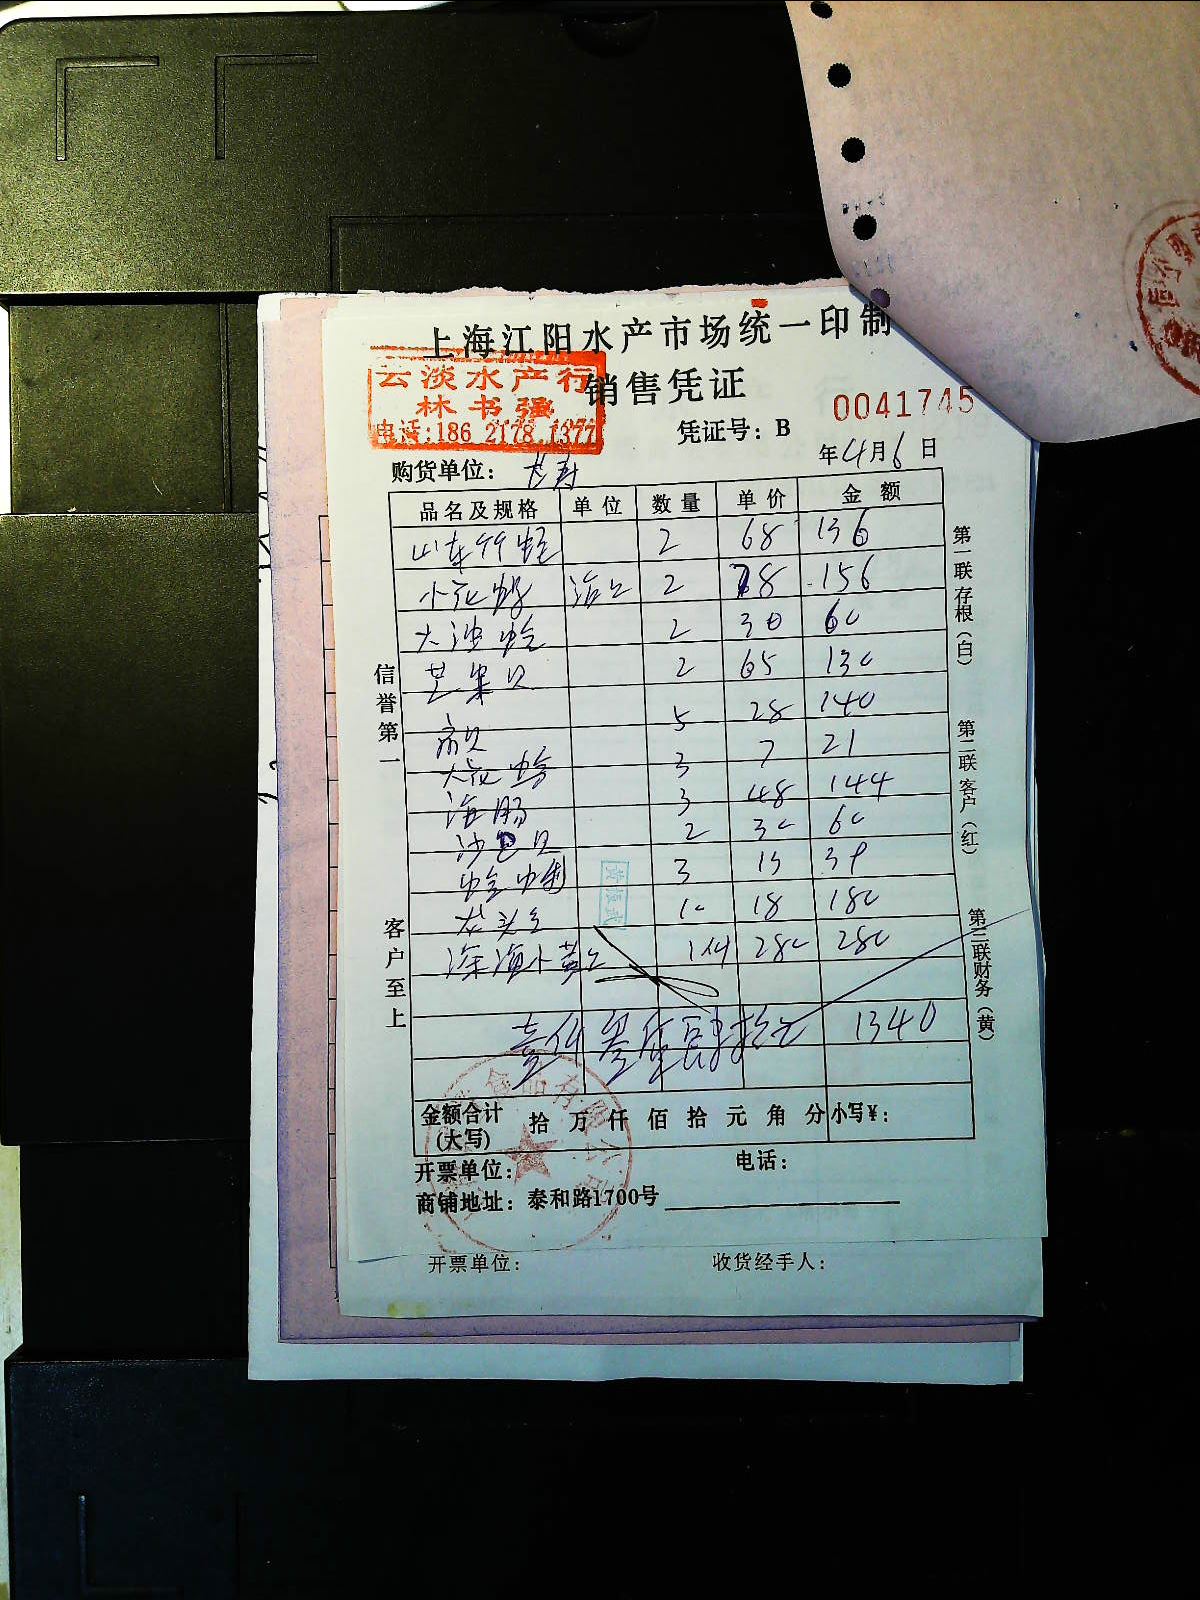 上海江阳水产市场统一印制
销售凭证
云淡水产行
林书强
电话:186 2178 1377
0041745
凭证号: B
年4月6日
购货单位: 长寿
品名及规格 单位 数量 单价 金额
山东 2 68 136
小花 2 78 156
大 2 30 60
芒果贝 2 65 130
贝 5 28 140
大花 3 7 21
海肠 3 48 144
沙 贝 2 30 60
蛏 3 13 39
龙头 10 18 180
深海小黄 280 280
壹仟叁佰肆拾元 1340
金额合计(大写) 拾 万 仟 佰 拾 元 角 分 小写¥:
开票单位: 电话:
商铺地址: 泰和路1700号
开票单位: 收货经手人:
信誉第一
客户至上
第一联存根(白)
第二联客户(红)
第三联财务(黄)